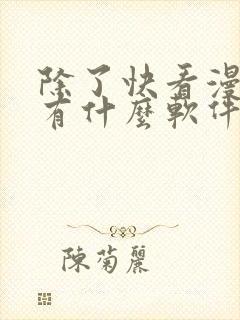 除了快看漫
有什麼軟件
陳菊麗